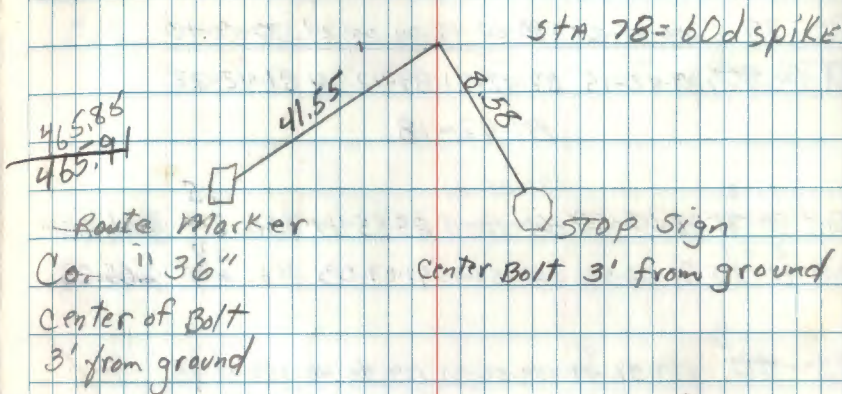 StA 78 = 60d spike
41.55
8.58
465.88
465.91
Route Marker
Co. "36"
Center of Bolt
3' from ground
STOP Sign
Center Bolt 3' from ground